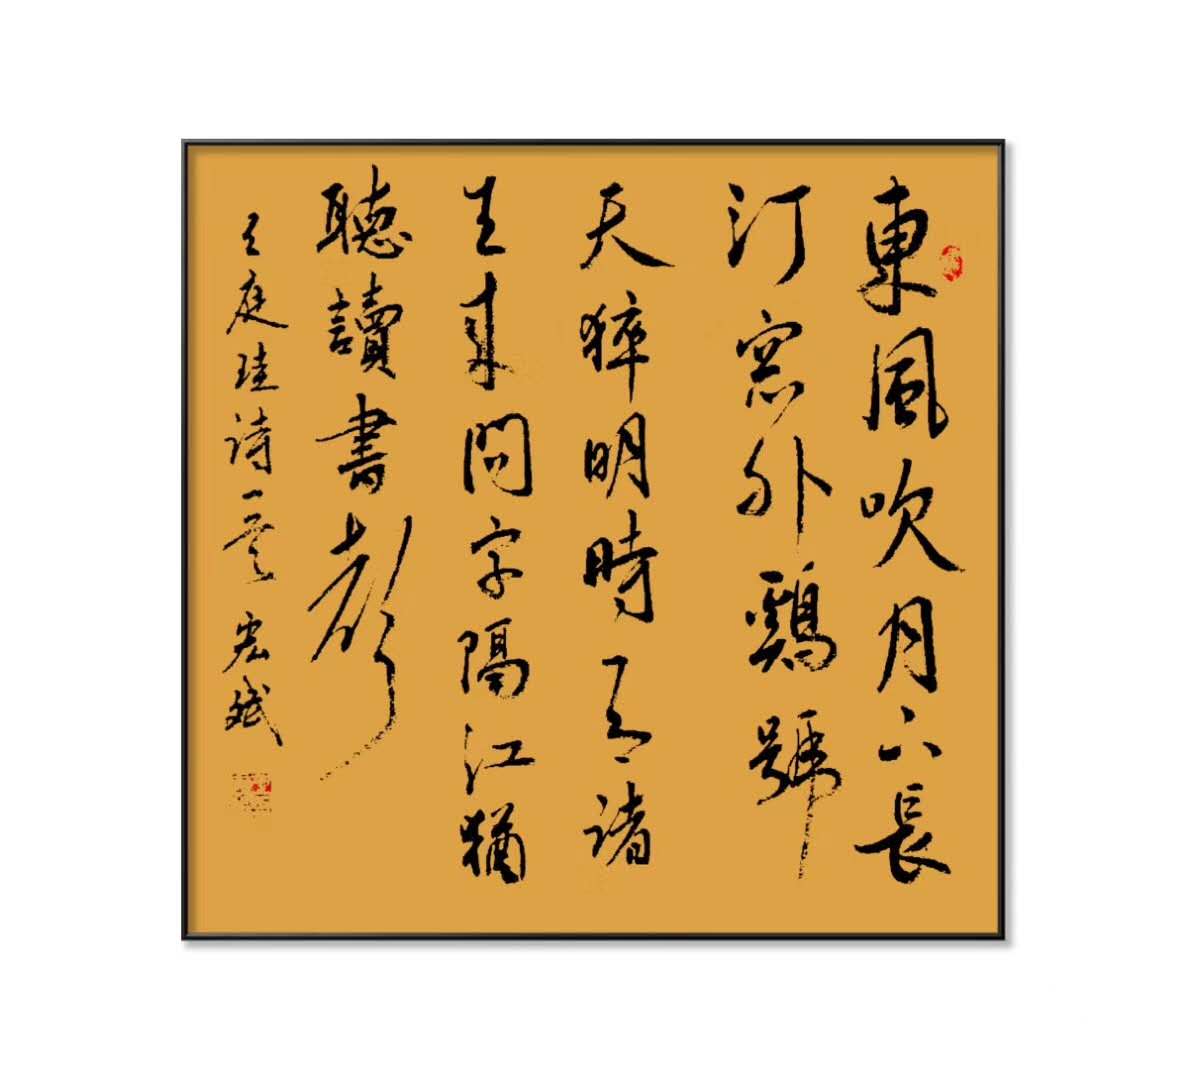 東風吹月下長
汀窓外鷄號
天猝明時有諸
生來問字隔江猶
聽讀書聲
王庭珪诗一首 宏斌